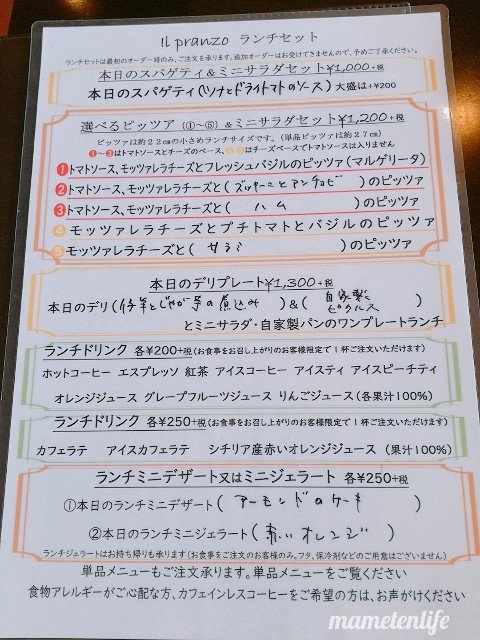 Il pranzo ランチセット
ランチセットは最初のオーダー時のみ、ご注文を承ります。追加オーダーはお受けできませんので、予めご了承ください。
本日のスパゲティ&ミニサラダセット¥1,000+税
本日のスパゲティ(ツナとドライトマトのソース) 大盛は+¥200
選べるピッツァ(①~⑤)&ミニサラダセット¥1,200+税
ピッツァは約22㎝の小さめランチサイズです。(単品ピッツァは約27㎝)
①~③はトマトソースとチーズのベース、④⑤はチーズベースでトマトソースは入りません
❶トマトソース、モッツァレラチーズとフレッシュバジルのピッツァ(マルゲリータ)
❷トマトソース、モッツァレラチーズと(ズッキーニとアンチョビ)のピッツァ
❸トマトソース、モッツァレラチーズと(ハム)のピッツァ
❹モッツァレラチーズとプチトマトとバジルのピッツァ
❺モッツァレラチーズと(サラミ)のピッツァ
本日のデリプレート¥1,300+税
本日のデリ(仔羊とじゃが芋の煮込み)&(自家製ピクルス)
とミニサラダ・自家製パンのワンプレートランチ
ランチドリンク 各¥200+税(お食事をお召し上がりのお客様限定で1杯ご注文いただけます)
ホットコーヒー エスプレッソ 紅茶 アイスコーヒー アイスティ アイスピーチティ
オレンジジュース グレープフルーツジュース りんごジュース(各果汁100%)
ランチドリンク 各¥250+税(お食事をお召し上がりのお客様限定で1杯ご注文いただけます)
カフェラテ アイスカフェラテ シチリア産赤いオレンジジュース (果汁100%)
ランチミニデザート又はミニジェラート 各¥250+税
①本日のランチミニデザート(アーモンドのケーキ)
②本日のランチミニジェラート(赤いオレンジ)
ランチジェラートはお持ち帰りも承ります(お食事をご注文のお客様のみ。フタ、保冷剤などのご用意はございません)
単品メニューもご注文承ります。単品メニューをご覧ください
食物アレルギーがご心配な方、カフェインレスコーヒーをご希望の方は、お声がけください
mametenlife